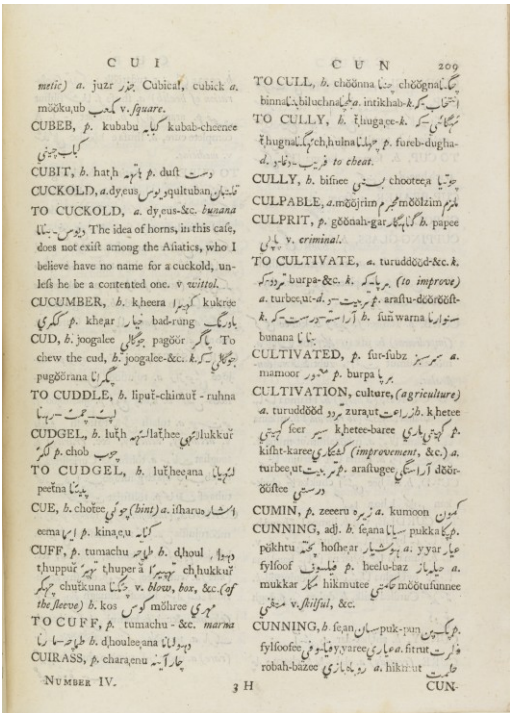 CUI
CUN
209
metic) a. juzr جذر Cubical, cubick a.
mööku,ub مكعب v. square.
CUBEB, p. kububu كبابه kubab-cheenee
كباب چيني
CUBIT, h. hat,h هاتهه p. dust دست
CUCKOLD, a. dy,eus ديوس qultuban قلتبان
TO CUCKOLD, a. dy,eus-&c. bunana
ديوس-بنانا The idea of horns, in this case,
does not exist among the Asiatics, who I
believe have no name for a cuckold, un-
less he be a contented one. v. wittol.
CUCUMBER, h. k,heera كهيرا kukree
ككري p. khe,ar خيار bad-rung بادرنگ
CUD, h. joogalee جوگالي pagoor پاگر To
chew the cud, h. joogalee-&c. k. جوگالي-ك
pugöörana پگرانا
TO CUDDLE, h. liput-chimut - ruhna
لپٹ-چمٹ-رہنا
CUDGEL, h. lut,h لٹهه lat,hee لاٹهي lukkur
لكڑ p. chob چوب
TO CUDGEL, h. lut,hee,ana لٹهيانا
peetna پيٹنا
CUE, h. chotee چوٹي (hint) a. isharu اشاره
eema ايما p. kina,e,u كنايه
CUFF, p. tumachu طماچه h. d,houl دهول
t,huppur تهپڑ t,huper a تهپيڑا ch,hukkur
چهكڑ chutkuna چٹكنا v. blow, box, &c. (of
the sleeve) h. kos كوس möhree مهري
TO CUFF, p. tumachu - &c. marna
طماچه-مارنا h. d,houlee,ana دهوليانا
CUIRASS, p. chara,enu چارآينه
NUMBER IV.
TO CULL, h. chöönna چننا chöögna چگنا
binna بننا biluchna بلچنا a. intikhab-k.
انتخاب-ك
TO CULLY, h. t,huga,ee-k. ٹهگائي-ك
t,hugna ٹهگنا ch,hulna چهلنا p. fureb-dugha-
d. فريب-دغا-د to cheat.
CULLY, h. bisnee بسني chootee,a چوتيا
CULPABLE, a. möojrim مجرم möolzim ملزم
CULPRIT, p. göönah-gar گناہگار h. papee
پاپي v. criminal.
TO CULTIVATE, a. turuddööd-&c. k.
تردد-ك burpa-&c. k. برپا-ك (to improve)
a. turbee,ut-d. تربيت-د p. arastu-döoröost-
k. آراسته-درست-ك h. sunwarna سنوارنا
bunana بنانا
CULTIVATED, p. sur-subz سرسبز a.
mamoor معمور p. burpa برپا
CULTIVATION, culture, (agriculture)
a. turuddööd تردد zura,ut زراعت h. k,hetee
كهيتي seer سير k,hetee-baree كهيتي باري p.
kisht-karee كشتكاري (improvement, &c.) a.
turbee,ut تربيت p. arastugee آراستگي döör-
ööstee درستي
CUMIN, p. zeeeru زيره a. kumoon كمون
CUNNING, adj. h. se,ana سيانا pukka پكا p.
pökhtu پخته hoshe,ar هوشيار a. y,yar عيار
fylsoof فيلسوف p. heelu-baz حيله باز a.
mukkar مكار hikmutee حكمتي möötufunnee
متفني v. skilful, &c.
CUNNING, h. se,an سيان puk-pun پك پن p.
fylsoofee فيلسوفي y,yaree عياري a. fitrut فطرت
robah-bazee روباه بازي a. hikmut حكمت
3 H
CUN-